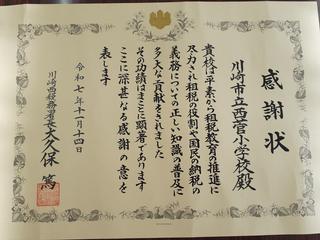 感謝状
川崎市立西菅小学校殿
貴校は平素から租税教育の推進に
尽力され租税の役割や国民の納税の
義務についての正しい知識の普及に
多大な貢献をされました
その功績はまことに顕著であります
ここに深甚なる感謝の意を
表します
令和七年十一月十四日
川崎西税務署長大久保篤